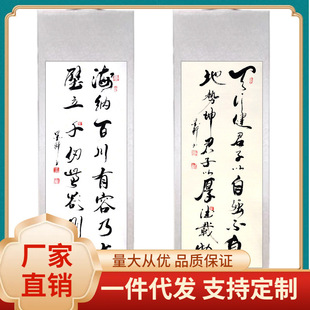 海纳百川有容乃大
壁立千仞无欲则
天行健君子以自强不息
地势坤君子以厚德载物
厂家
直销
量大从优 品质保证
一件代发 支持定制